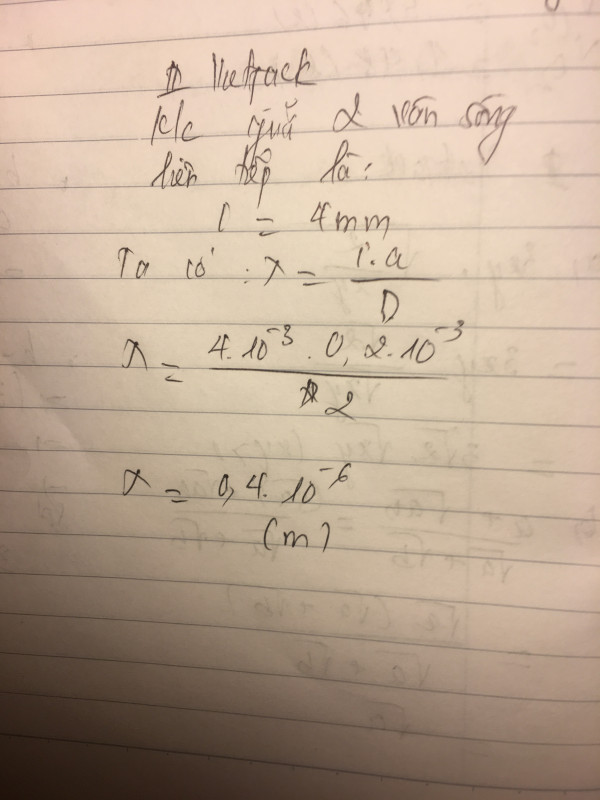 Vietjack
k/c giữa 2 vân sáng
liên tiếp là:
i = 4mm
Ta có : λ = i.a / D
λ = 4.10⁻³ . 0,2.10⁻³ / 2
λ = 0,4.10⁻⁶
(m)